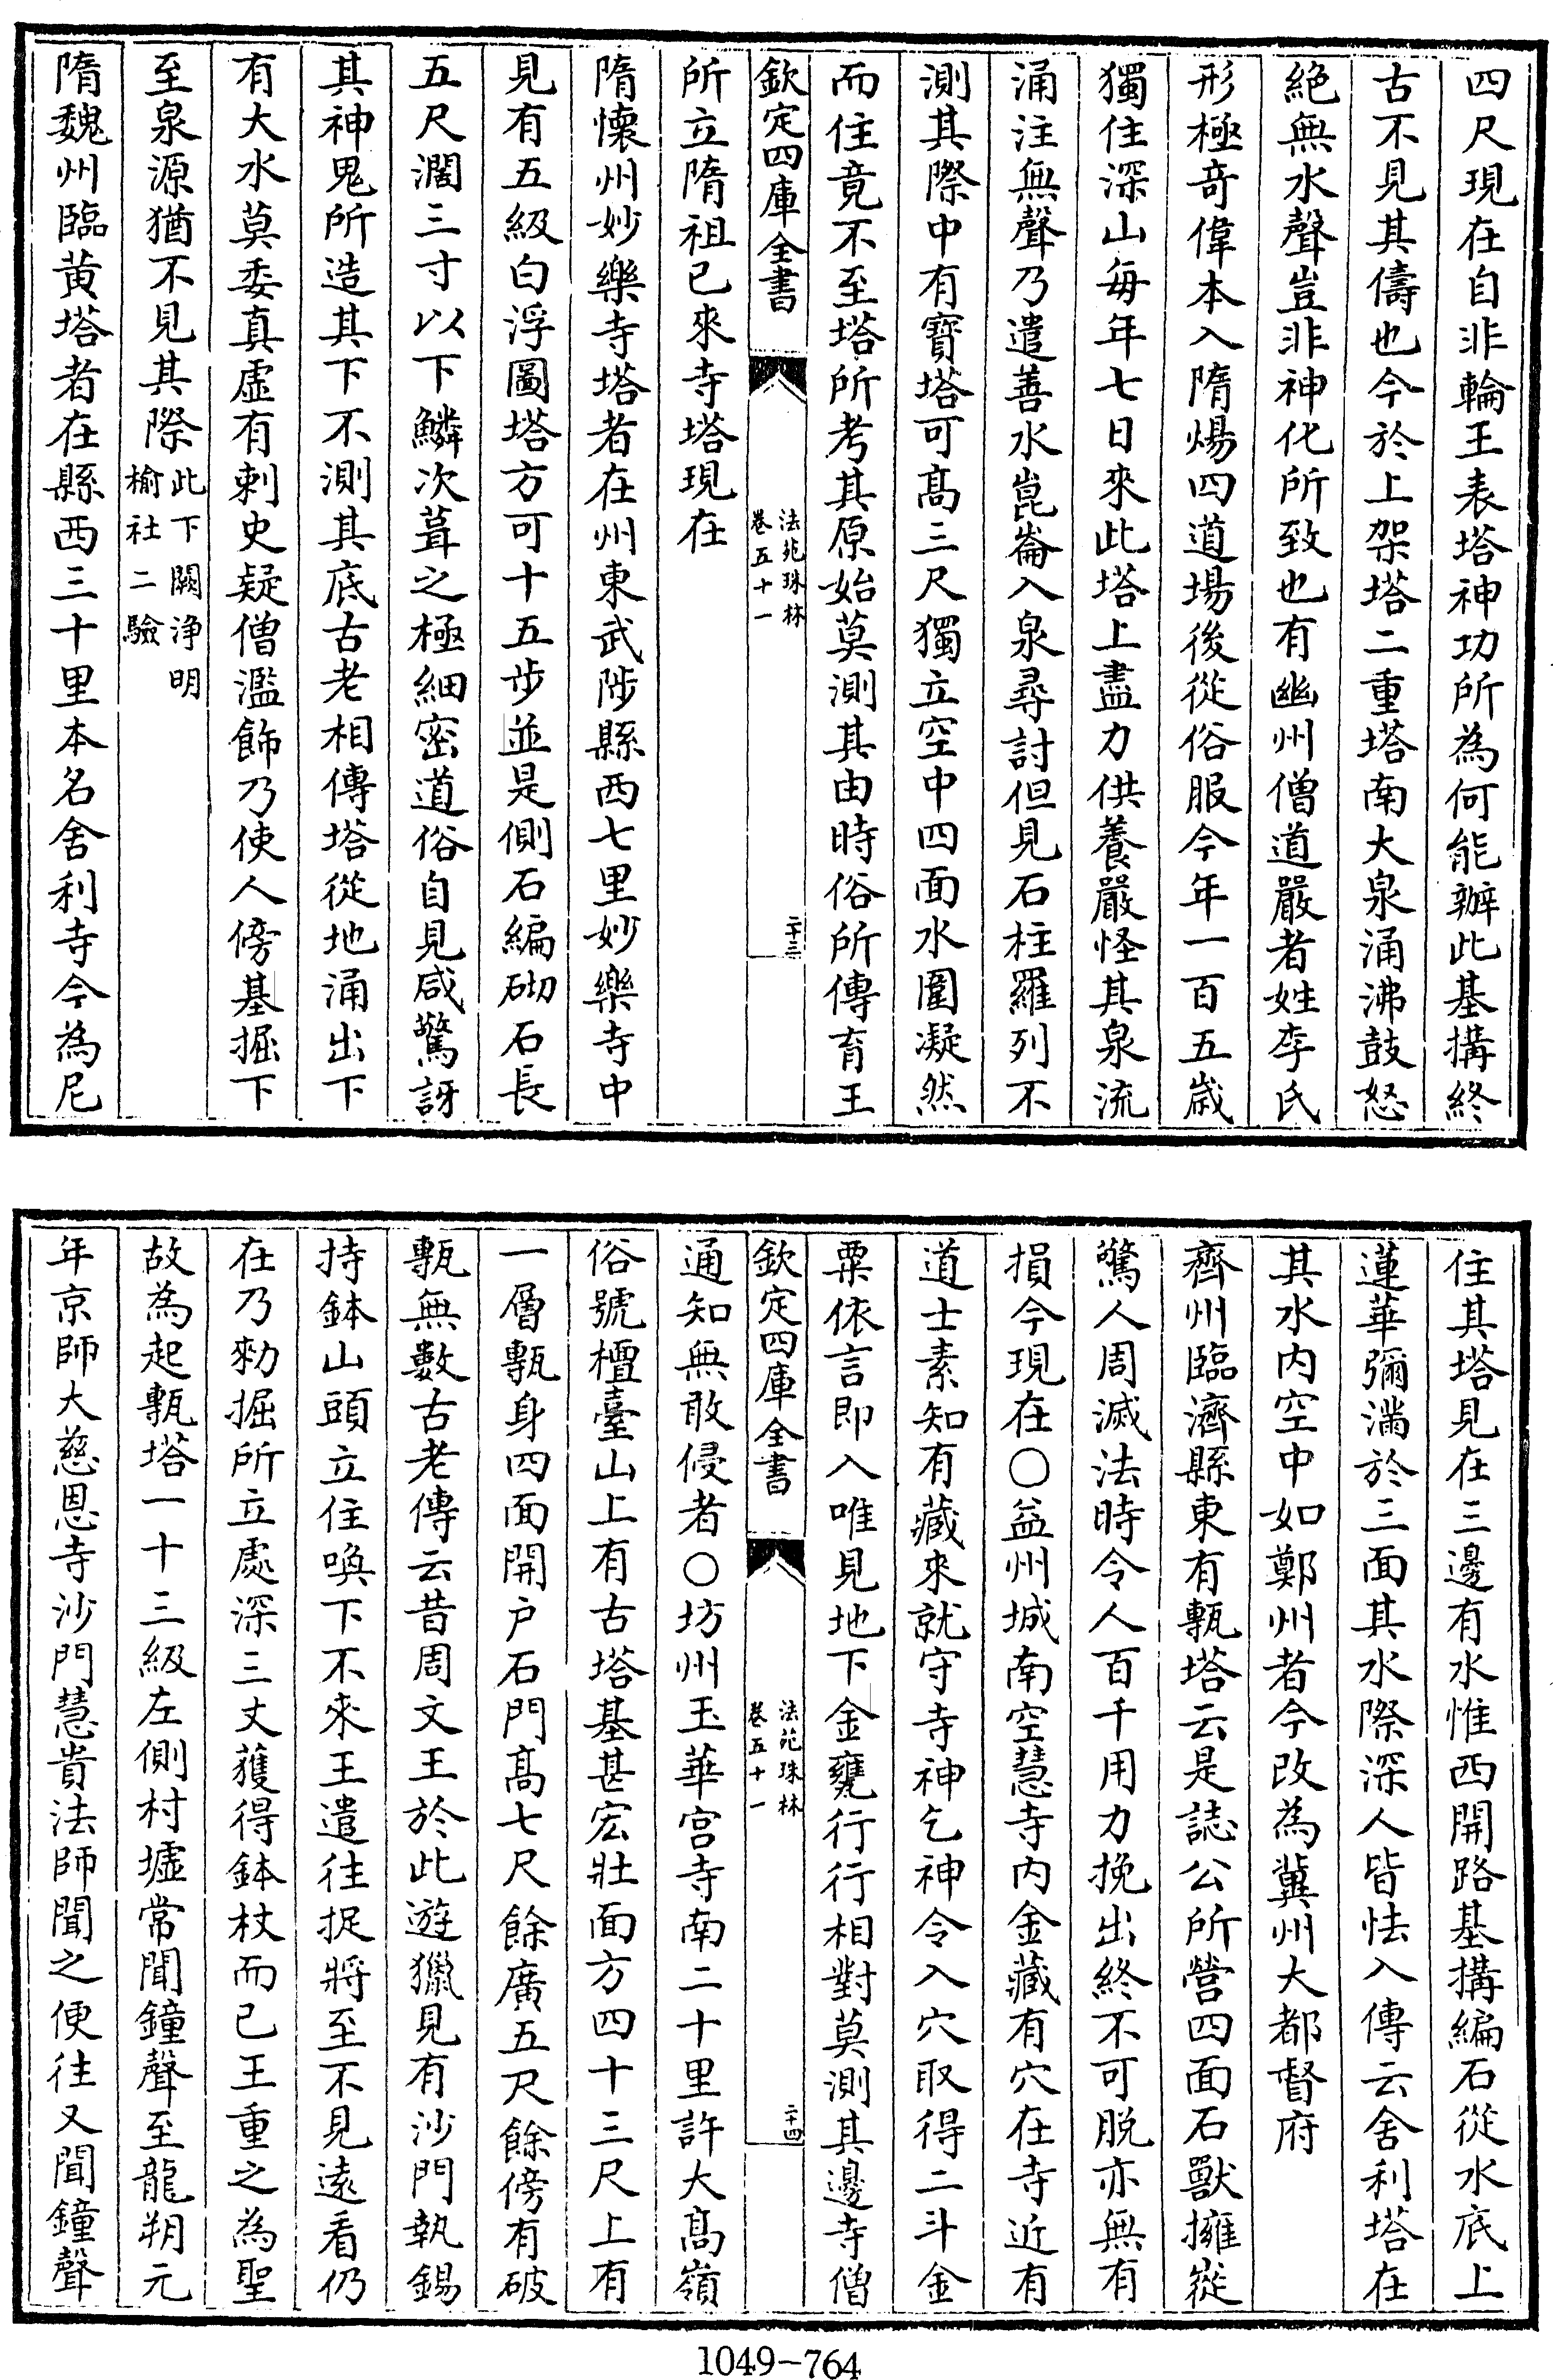 四尺現在自非輪王表塔神功所為何能辦此基搆終
古不見其儔也今於上架塔二重塔南大泉涌沸鼓怒
絕無水聲豈非神化所致也有幽州僧道嚴者姓李氏
形極奇偉本入隋煬四道場後從俗服今年一百五歲
獨住深山每年七日來此塔上盡力供養嚴怪其泉流
涌注無聲乃遣善水崑崙入泉尋討但見石柱羅列不
測其際中有寶塔可髙三尺獨立空中四面水圍凝然
而住竟不至塔所考其原始莫測其由時俗所傳育王
欽定四庫全書
法苑珠林
卷五十一
二十三
所立隋祖已來寺塔現在
隋懷州妙樂寺塔者在州東武陟縣西七里妙樂寺中
見有五級白浮圖塔方可十五步並是側石編砌石長
五尺濶三寸以下鱗次葺之極細密道俗自見咸驚訝
其神鬼所造其下不測其底古老相傳塔從地涌出下
有大水莫委真虚有刺史疑僧濫飾乃使人傍基掘下
至泉源猶不見其際
此下闕浄明
榆社二驗
隋魏州臨黄塔者在縣西三十里本名舍利寺今為尼
住其塔見在三邊有水惟西開路基搆編石從水底上
蓮華彌滿於三面其水際深人皆怯入傳云舍利塔在
其水内空中如鄭州者今改為冀州大都督府
齊州臨濟縣東有甎塔云是誌公所營四面石獸擁從
驚人周滅法時令人百千用力挽出終不可脱亦無有
損今現在○益州城南空慧寺内金藏有穴在寺近有
道士素知有藏來就守寺神乞神令入穴取得二斗金
粟依言即入唯見地下金甕行行相對莫測其邊寺僧
欽定四庫全書
法苑珠林
卷五十一
二十四
通知無敢侵者○坊州玉華宫寺南二十里許大髙嶺
俗號檀臺山上有古塔基甚宏壯面方四十三尺上有
一層甎身四面開户石門髙七尺餘廣五尺餘傍有破
甎無數古老傳云昔周文王於此遊獵見有沙門執錫
持鉢山頭立住喚下不來王遣往捉將至不見逺看仍
在乃勑掘所立處深三丈獲得鉢杖而已王重之為聖
故為起甎塔一十三級左側村墟常聞鐘聲至龍朔元
年京師大慈恩寺沙門慧貴法師聞之便往又聞鐘聲
1049-764